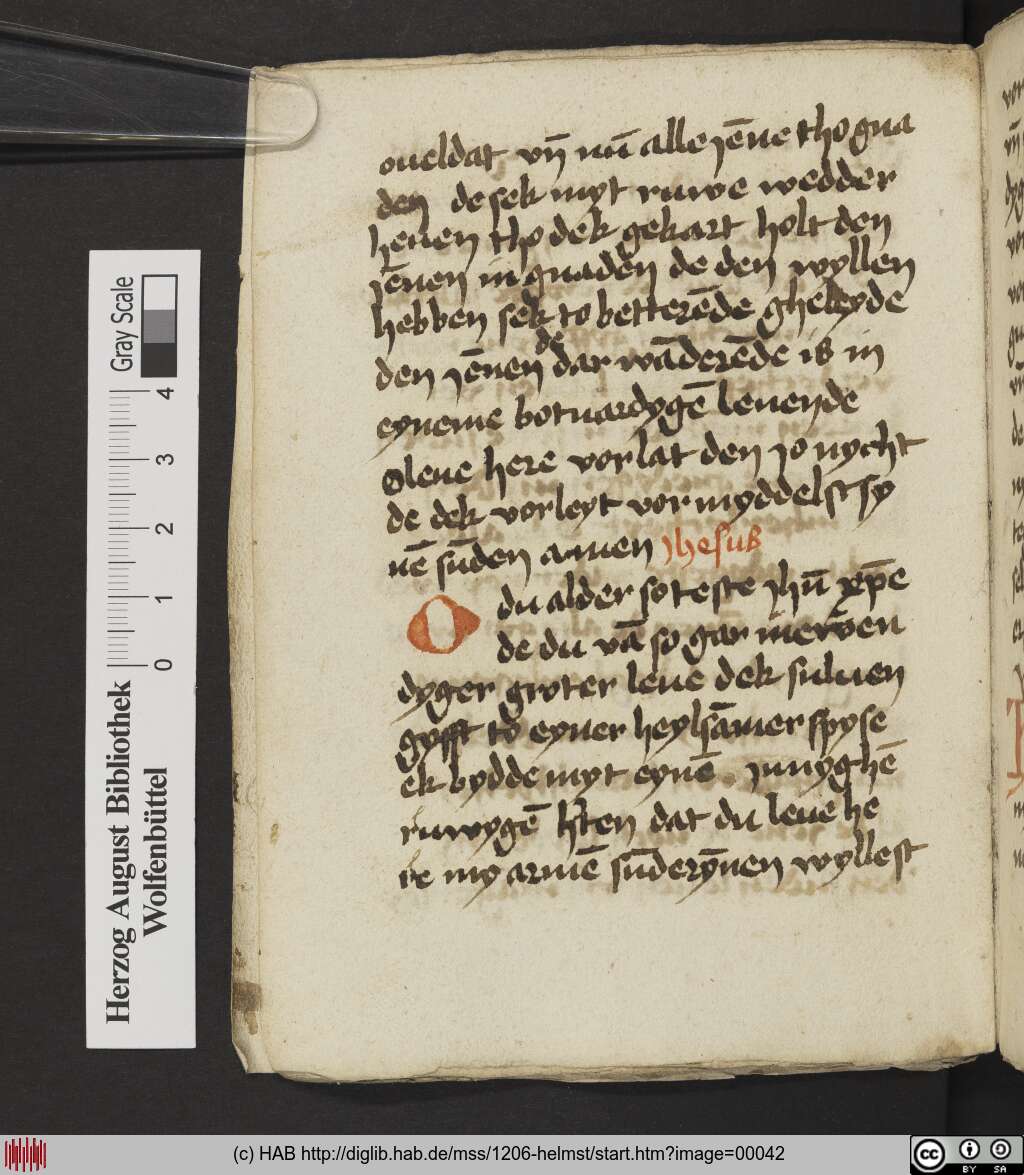 oueldat vn̄ nū alle jēne tho gna
den de sek myt ruwe wedder
heuen tho dek gekart holt den
jēnen in gnaden de den wyllen
hebben sek to bettērēde gheleyde
den jēnen de dar wāderēde is in
eyneme botuardygē leuende
O leue here vorlat den jo nycht
de dek vorleyt vormyddelst sy
nē sūden amen jhesus
O du alder soteste jhū xp̄e
de du vā so gar
dyger groter leue dek suluen
gyfft to eyner heylsāmer spyse
ek bydde myt eynē jnnyghē
ruwygē hten dat du leue he
re my armē sūderȳnen wyllest
Gray Scale
4
3
2
1
0
Herzog August Bibliothek
Wolfenbüttel
(c) HAB http://diglib.hab.de/mss/1206-helmst/start.htm?image=00042
cc
BY SA